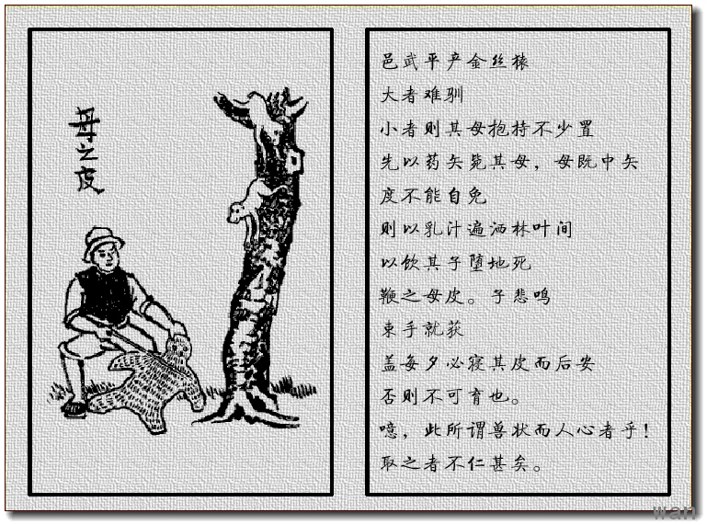 母之皮
邑武平产金丝猿
大者难驯
小者则其母抱持不少置
先以药矢毙其母，母既中矢
度不能自免
则以乳汁遍洒林叶间
以饮其子堕地死
鞭之母皮。子悲鸣
束手就获
盖每夕必寝其皮而后安
否则不可育也。
噫，此所谓兽状而人心者乎！
取之者不仁甚矣。
wan